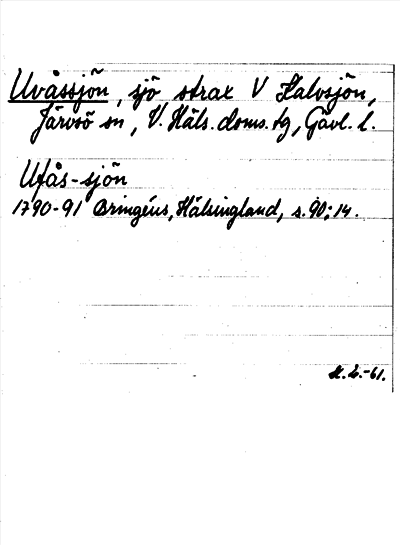 Uvåssjön, sjö strax V Kalvsjön,
Järvsö sn, V. Häls. doms. tg, Gävl. l.
Ufås-sjön
1790-91 Bringéus, Hälsingland, s. 90; 14.
-61.